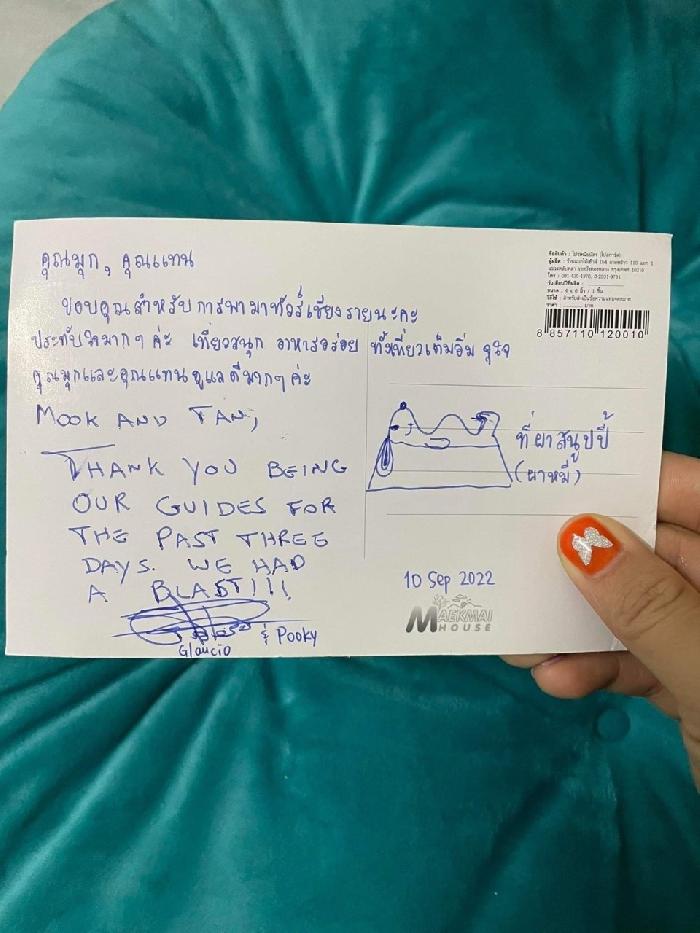 คุณมุก, คุณแทน
ขอบคุณสำหรับการพามาทัวร์เชียงรายนะคะ
ประทับใจมากๆ ค่ะ เที่ยวสนุก อาหารอร่อย ทั้งเที่ยวเต็มอิ่ม จุใจ
คุณมุกและคุณแทนดูแลดีมากๆ ค่ะ
MOOK AND TAN,
THANK YOU BEING
OUR GUIDES FOR
THE PAST THREE
DAYS. WE HAD
A BLAST!!!
Glaucio & Pooky
8 857110 120010
ที่ผาสนูปปี้
(ผาหมี)
10 Sep 2022
MAEKMAI
HOUSE